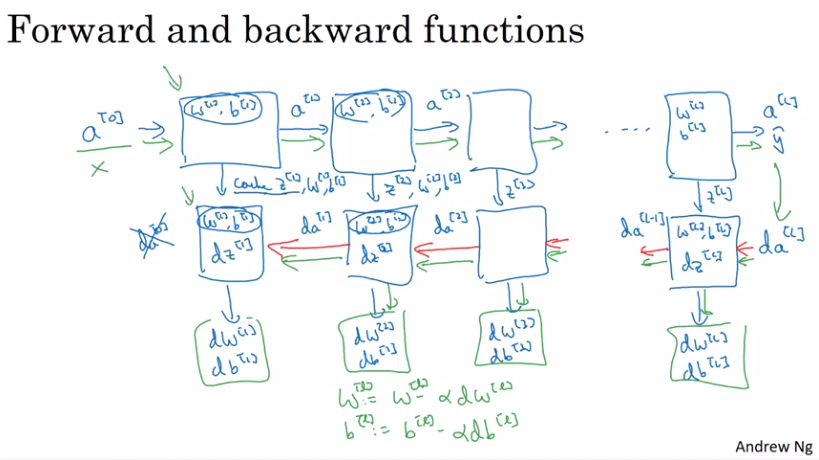 Forward and backward functions
a^[0] w^[1], b^[1] a^[1] w^[2], b^[2] a^[2] .... w^[L] b^[L] a^[L]
x ŷ
cache z^[1], w^[1], b^[1] z^[2], w^[2], b^[2] z^[3] z^[L]
da^[0] w^[1], b^[1] da^[1] w^[2], b^[2] da^[2] da^[L-1] w^[L], b^[L] da^[L]
dz^[1] dz^[2] dz^[L]
dw^[1] dw^[2] dw^[3] dw^[L]
db^[1] db^[2] db^[3] db^[L]
w^[l] := w^[l] - αdw^[l]
b^[l] := b^[l] - αdb^[l]
Andrew Ng